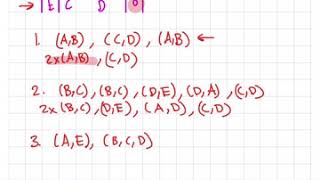 → |E| C D |D|
1. (A,B), (C,D), (A,B) ←
2x(A,B), (C,D)
2. (B,C), (B,C), (D,E), (D,A), (C,D)
2x(B,C), (D,E), (A,D), (C,D)
3. (A,E), (B,C,D)